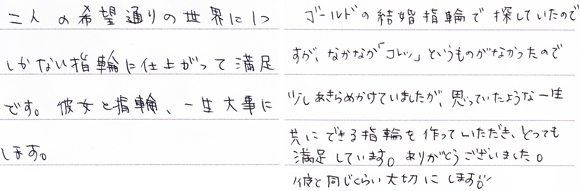 二人の希望通りの世界に1つ
しかない指輪に仕上がって満足
です。彼女と指輪、一生大事に
します。
ゴールドの結婚指輪で探していたので
すが、なかなか「コレッ」というものがなかったので
少しあきらめかけていましたが、思っていたような一生
共にできる指輪を作っていただき、とっても
満足しています。ありがとうございました。
彼と同じくらい大切にしますが